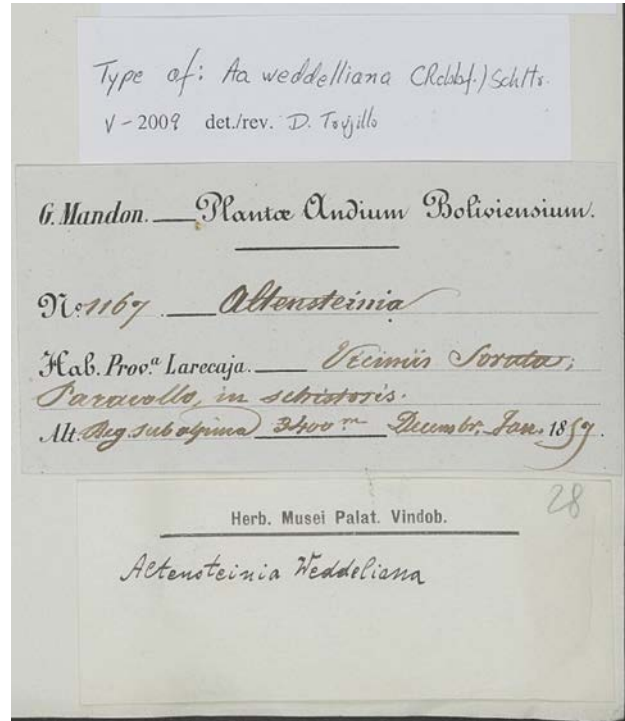 Type of: Aa weddelliana (Rchbf.) Schltr.
V-2009 det./rev. D. Trujillo
G. Mandon. Plantæ Andium Boliviensium.
No. 1167 Altensteinia
Hab. Prov.a Larecaja. Viciniis Sorata;
Paracollo, in schistosis.
Alt. Reg. subalpina 3400 m Decembr. Jan. 1859.
28
Herb. Musei Palat. Vindob.
Altensteinia Weddeliana